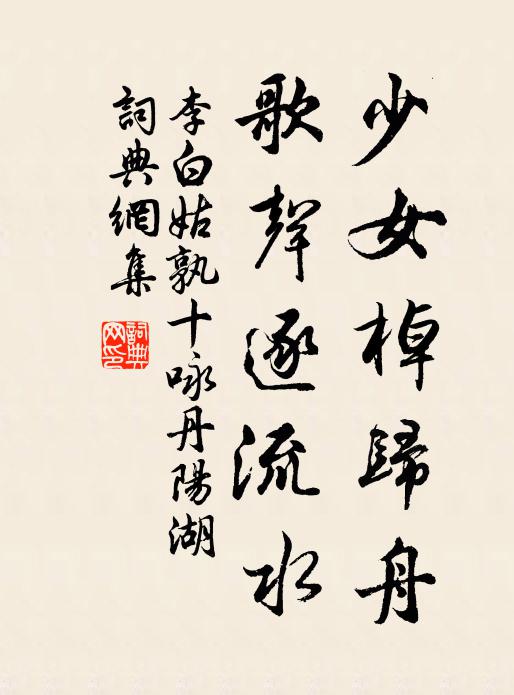 少女棹歸舟
歌聲逐流水
李白姑孰十咏丹陽湖
詞典網集
詞典網印